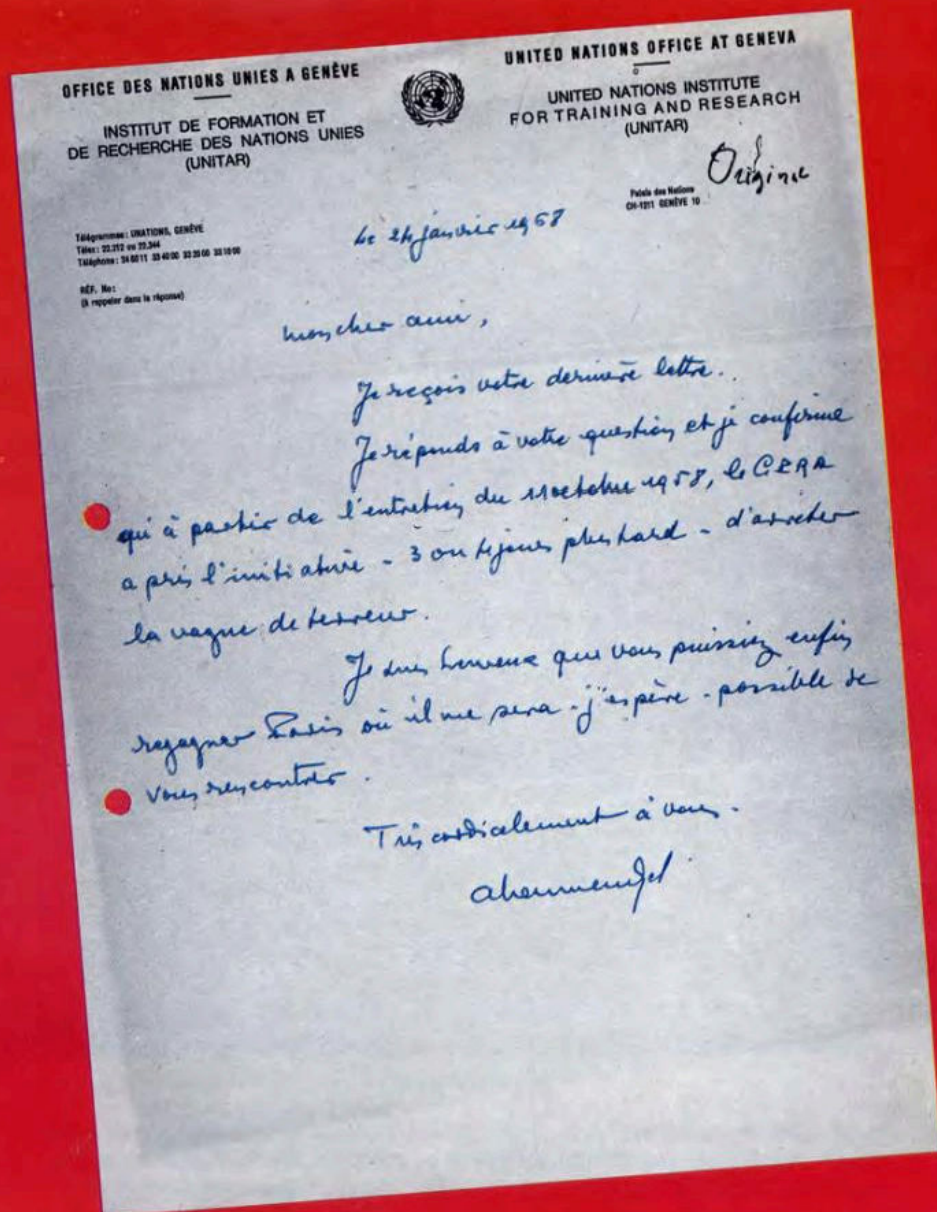 OFFICE DES NATIONS UNIES A GENÈVE
INSTITUT DE FORMATION ET
DE RECHERCHE DES NATIONS UNIES
(UNITAR)
UNITED NATIONS OFFICE AT GENEVA
UNITED NATIONS INSTITUTE
FOR TRAINING AND RESEARCH
(UNITAR)
Original
Palais des Nations
CH-1211 GENÈVE 10
Télégrammes: UNATIONS, GENÈVE
Télex: 22.212 ou 22.344
Téléphone: 34 60 11 33 40 00 33 20 00 33 10 00
RÉF. No:
(à rappeler dans la réponse)
le 24 janvier 1968
mon cher ami,
Je reçois votre dernière lettre.
Je réponds à votre question et je confirme
qu'à partir de l'entretien du 11 octobre 1958, le GPRA
a pris l'initiative - 3 ou 4 jours plus tard - d'arrêter
la vague de terreur.
Je suis heureux que vous puissiez enfin
regagner Paris où il me sera - j'espère - possible de
vous rencontrer.
Très cordialement à vous.